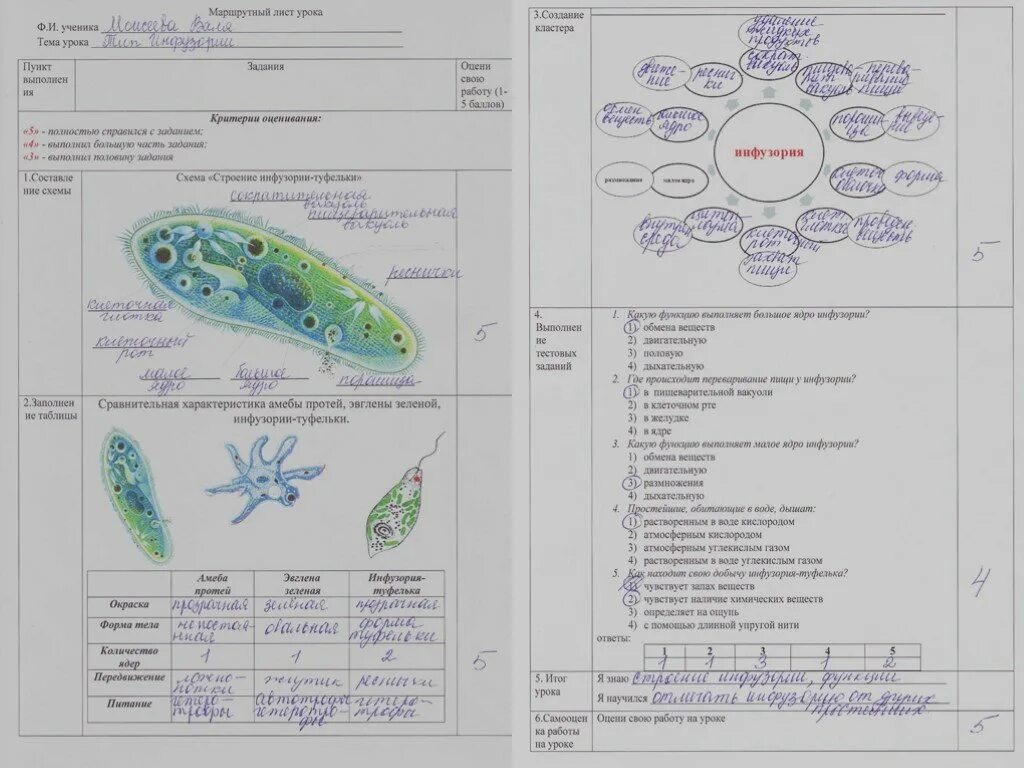 Маршрутный лист урока
Ф.И. ученика Моисеева Валя
Тема урока Тип Инфузории
Пункт выполнения
Задания
Оцени свою работу (1-5 баллов)
Критерии оценивания:
«5» - полностью справился с заданием;
«4» - выполнил большую часть задания;
«3» - выполнил половину задания
1.Составление схемы
Схема «Строение инфузории-туфельки»
сократительная
вакуоль
пищеварительная
вакуоль
реснички
клеточная
глотка
клеточный
рот
малое
ядро
большое
ядро
порошица
5
2.Заполнение таблицы
Сравнительная характеристика амебы протей, эвглены зеленой,
инфузории-туфельки.
Амеба протей Эвглена зеленая Инфузория-туфелька
Окраска прозрачная зелёная прозрачная
Форма тела непостоянная овальная форма туфельки
Количество ядер 1 1 2
Передвижение ложноножки жгутик реснички
Питание гетеротрофы автотрофы гетеротрофы гетеротрофы
5
3.Создание кластера
удаление
жидких
продуктов
сократ.
вакуоль
движение
реснички
пищеварит. вакуоль
переваривание пищи
обмен веществ
большое ядро
порошица
выведение
инфузория
размножение
малое ядро
клеточ. оболочка
форма
внутрен. среда
цитоплазма
клеточный
рот
захват
пищи
клет. глотка
проведен. веществ
5
4. Выполнение тестовых заданий
1. Какую функцию выполняет большое ядро инфузории?
1) обмена веществ
2) двигательную
3) половую
4) дыхательную
2. Где происходит переваривание пищи у инфузории?
1) в пищеварительной вакуоли
2) в клеточном рте
3) в желудке
4) в ядре
3. Какую функцию выполняет малое ядро инфузории?
1) обмена веществ
2) двигательную
3) размножения
4) дыхательную
4. Простейшие, обитающие в воде, дышат:
1) растворенным в воде кислородом
2) атмосферным кислородом
3) атмосферным углекислым газом
4) растворенным в воде углекислым газом
5. Как находит свою добычу инфузория-туфелька?
1) чувствует запах веществ
2) чувствует наличие химических веществ
3) определяет на ощупь
4) с помощью длинной упругой нити
ответы:
1 2 3 4 5
1 1 3 1 2
4
5. Итог урока
Я знаю строение инфузории, функции
Я научился отличать инфузорию от других
простейших
6.Самооценка работы на уроке
Оцени свою работу на уроке
5